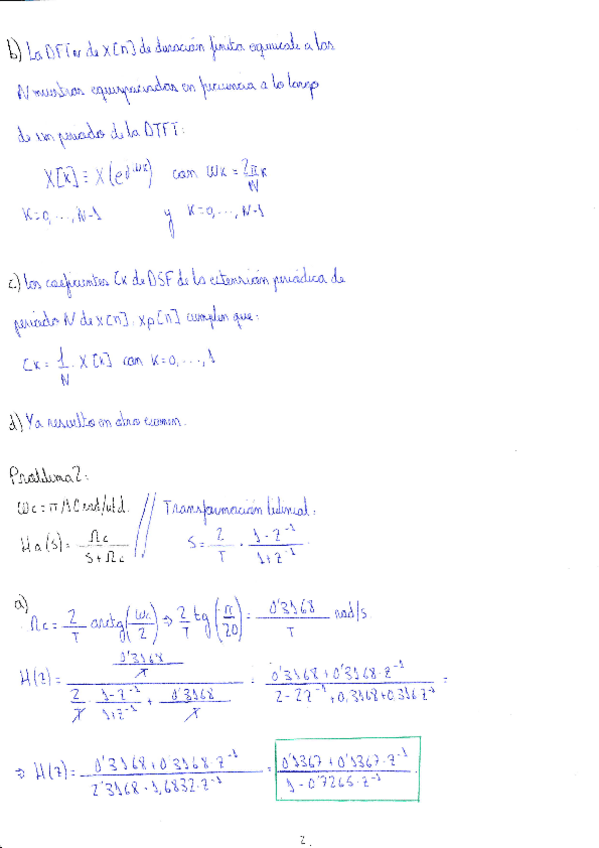 b) La DFTN de X[n] de duración finita equivale a las
N muestras equiespaciadas en frecuencia a lo largo
de un periodo de la DTFT:
X[k] ≡ X(e^jωk) con ωk = 2π/N k
K=0, ..., N-1 y K=0, ..., N-1
c) Los coeficientes Ck de DSF de la extensión periódica de
periodo N de x[n], xp[n] cumplen que:
Ck = 1/N · X[k] con K=0, ..., 1
d) Ya resuelto en otro examen.
Problema 2:
ωc = π/10 rad/utd. // Transformación bilineal:
Ha(s) = Ωc/(s+Ωc) // s = 2/T · (1-z^-1)/(1+z^-1)
a)
Ωc = 2/T arctg(ωc/2) ⇒ 2/T tg(π/20) = 0'3168/T rad/s
H(z) = (0'3168/T)/(2/T · (1-z^-1)/(1+z^-1) + 0'3168/T) = (0'3168+0'3168·z^-1)/(2-2z^-1+0,3168+0,316z^-1) =
⇒ H(z) = (0'3168+0'3168·z^-1)/(2'3168-1,6832·z^-1) = (0'1367+0'1367·z^-1)/(1-0'7265·z^-1)
2